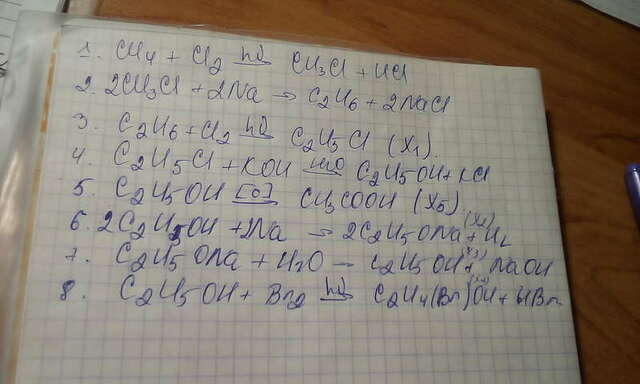 1. CH4 + Cl2 hν→ CH3Cl + HCl
2. 2CH3Cl + 2Na → C2H6 + 2NaCl
3. C2H6 + Cl2 hν→ C2H5Cl (X1).
4. C2H5Cl + KOH H2O→ C2H5OH + KCl
5. C2H5OH [O]→ CH3COOH (X5)
6. 2C2H5OH + 2Na → 2C2H5ONa (X2) + H2
7. C2H5ONa + H2O → C2H5OH (X3) + NaOH
8. C2H5OH + Br2 hν→ C2H4(Br)OH (X4) + HBr